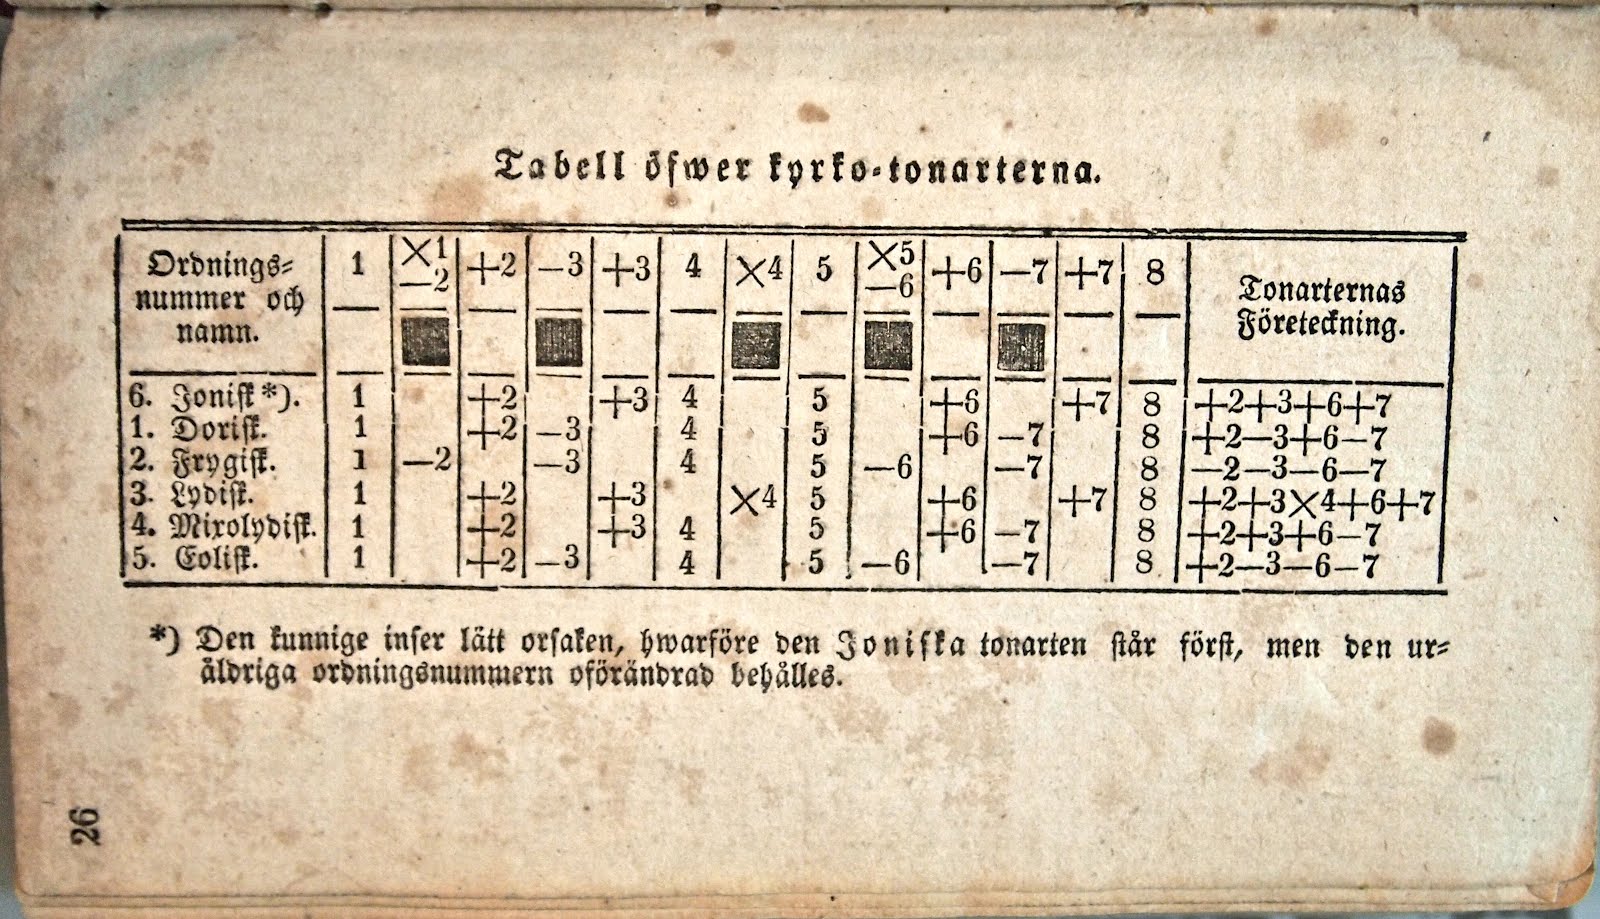 Tabell öfwer kyrko-tonarterna.
Ordnings-
nummer och
namn.
1 ×1 +2 −3 +3 4 ×4 5 ×5 +6 −7 +7 8
−2 −6
Tonarternas
Företeckning.
6. Jonisk *). 1 +2 +3 4 5 +6 +7 8 +2+3+6+7
1. Dorisk. 1 +2 −3 4 5 +6 −7 8 +2−3+6−7
2. Frygisk. 1 −2 −3 4 5 −6 −7 8 −2−3−6−7
3. Lydisk. 1 +2 +3 ×4 5 +6 +7 8 +2+3×4+6+7
4. Mixolydisk. 1 +2 +3 4 5 +6 −7 8 +2+3+6−7
5. Eolisk. 1 +2 −3 4 5 −6 −7 8 +2−3−6−7
*) Den kunnige inser lätt orsaken, hwarföre den Joniska tonarten står först, men den ur-
äldriga ordningsnummern oförändrad behålles.
26